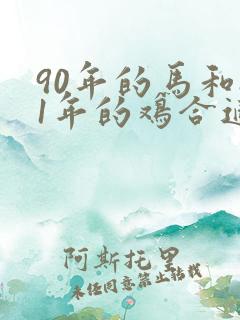 90年的马和
1年的鸡合
阿斯托里
未经同意禁止转载